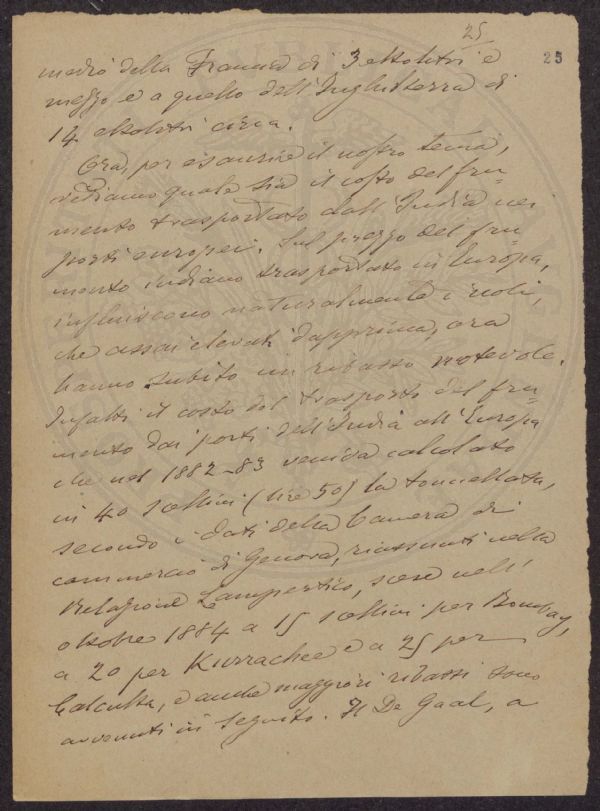 25
25
medio della Francia di 3 ettolitri e
mezzo e a quello dell'Inghilterra di
14 ettolitri circa.
Ora, per esaurire il nostro tema,
vediamo quale sia il costo del fru-
mento trasportato dall'India nei
porti europei. Sul prezzo del fru-
mento indiano trasportato in Europa,
influiscono naturalmente i noli,
che assai elevati dapprima, ora
hanno subito un ribasso notevole.
Infatti il costo del trasporto del fru-
mento dai porti dell'India all'Europa
che nel 1882-83 veniva calcolato
in 40 scellini (lire 50) la tonnellata,
secondo i dati della Camera di
commercio di Genova, riassunti nella
Relazione Lampertico, scese nell'
ottobre 1884 a 15 scellini per Bombay,
a 20 per Kurrachee e a 25 per
Calcutta, e anche maggiori ribassi sono
avvenuti in seguito. Il De Gaal, a